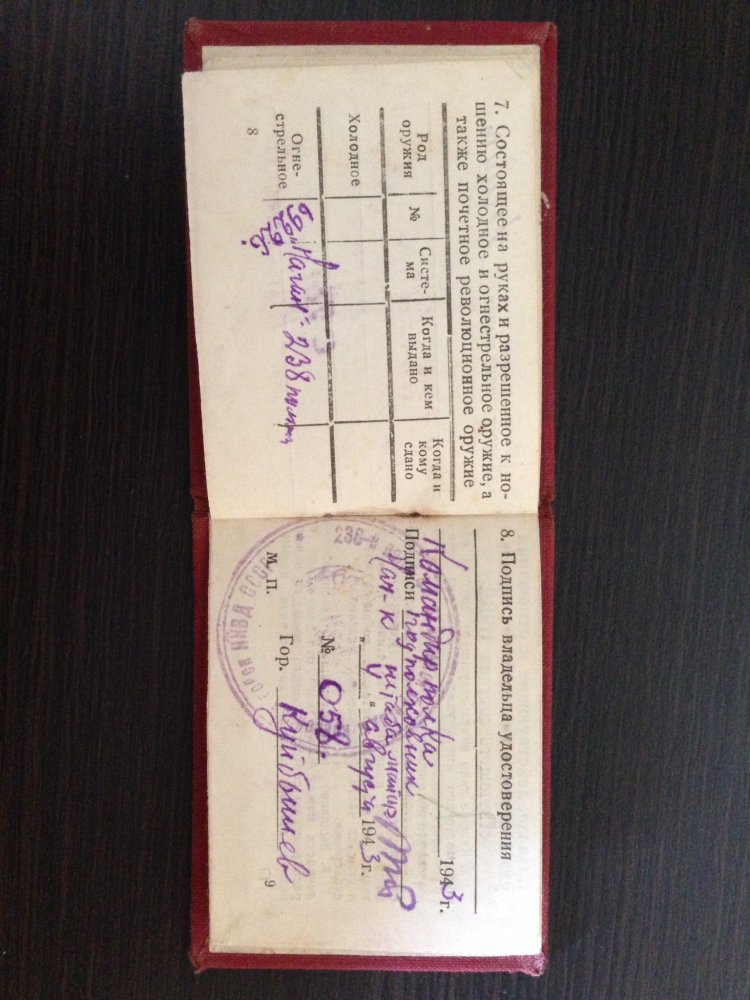 7. Состоящее на руках и разрешенное к но-
шению холодное и огнестрельное оружие, а
также почетное революционное оружие
Род оружия № Систе-ма Когда и кем выдано Когда и кому сдано
Холодное
Огне-стрельное "Наган" 238
8
8. Подпись владельца удостоверения
1943 г.
Командир полка
Подписи подполковник
Нач-к штаба майор
"4" августа 1943 г.
№ 058.
М. П. Гор. Куйбышев
9
НКВД СССР